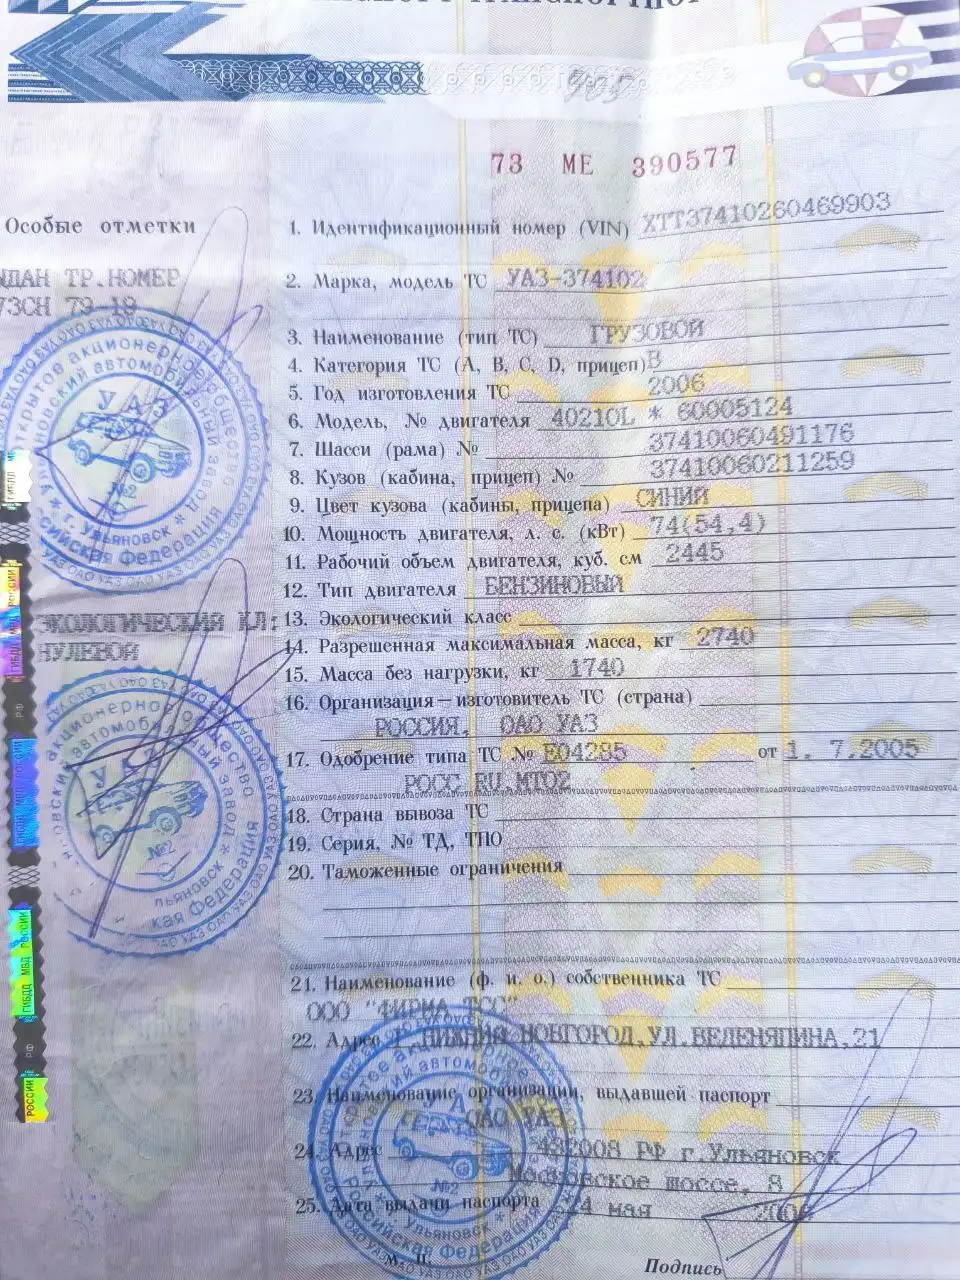 73 МЕ 390577
Особые отметки
ТР.НОМЕР
УЗСН 79-18
1. Идентификационный номер (VIN) XTT37410260469903
2. Марка, модель ТС УАЗ-374102
3. Наименование (тип ТС) ГРУЗОВОЙ
4. Категория ТС (А, В, С, D, прицеп) В
5. Год изготовления ТС 2006
6. Модель, № двигателя 40210L * 60005124
7. Шасси (рама) № 37410060491176
8. Кузов (кабина, прицеп) № 37410060211259
9. Цвет кузова (кабины, прицепа) СИНИЙ
10. Мощность двигателя, л. с. (кВт) 74(54,4)
11. Рабочий объем двигателя, куб. см 2445
12. Тип двигателя БЕНЗИНОВЫЙ
ЭКОЛОГИЧЕСКИЙ КЛ:
НУЛЕВОЙ
13. Экологический класс
14. Разрешенная максимальная масса, кг 2740
15. Масса без нагрузки, кг 1740
16. Организация–изготовитель ТС (страна)
РОССИЯ, ОАО УАЗ
17. Одобрение типа ТС № Е04285 от 1. 7.2005
РОСС RU.МТ02
18. Страна вывоза ТС
19. Серия, № ТД, ТПО
20. Таможенные ограничения
21. Наименование (ф. и. о.) собственника ТС
ООО "ФИРМА ТСС"
22. Адрес Г.НИЖНИЙ НОВГОРОД,УЛ.ВЕДЕНЯПИНА,21
23. Наименование организации, выдавшей паспорт
ОАО УАЗ
24. Адрес 432008 РФ г.Ульяновск
Московское шоссе, 8
25. Дата выдачи паспорта 24 мая 2006
М. П.
Подпись